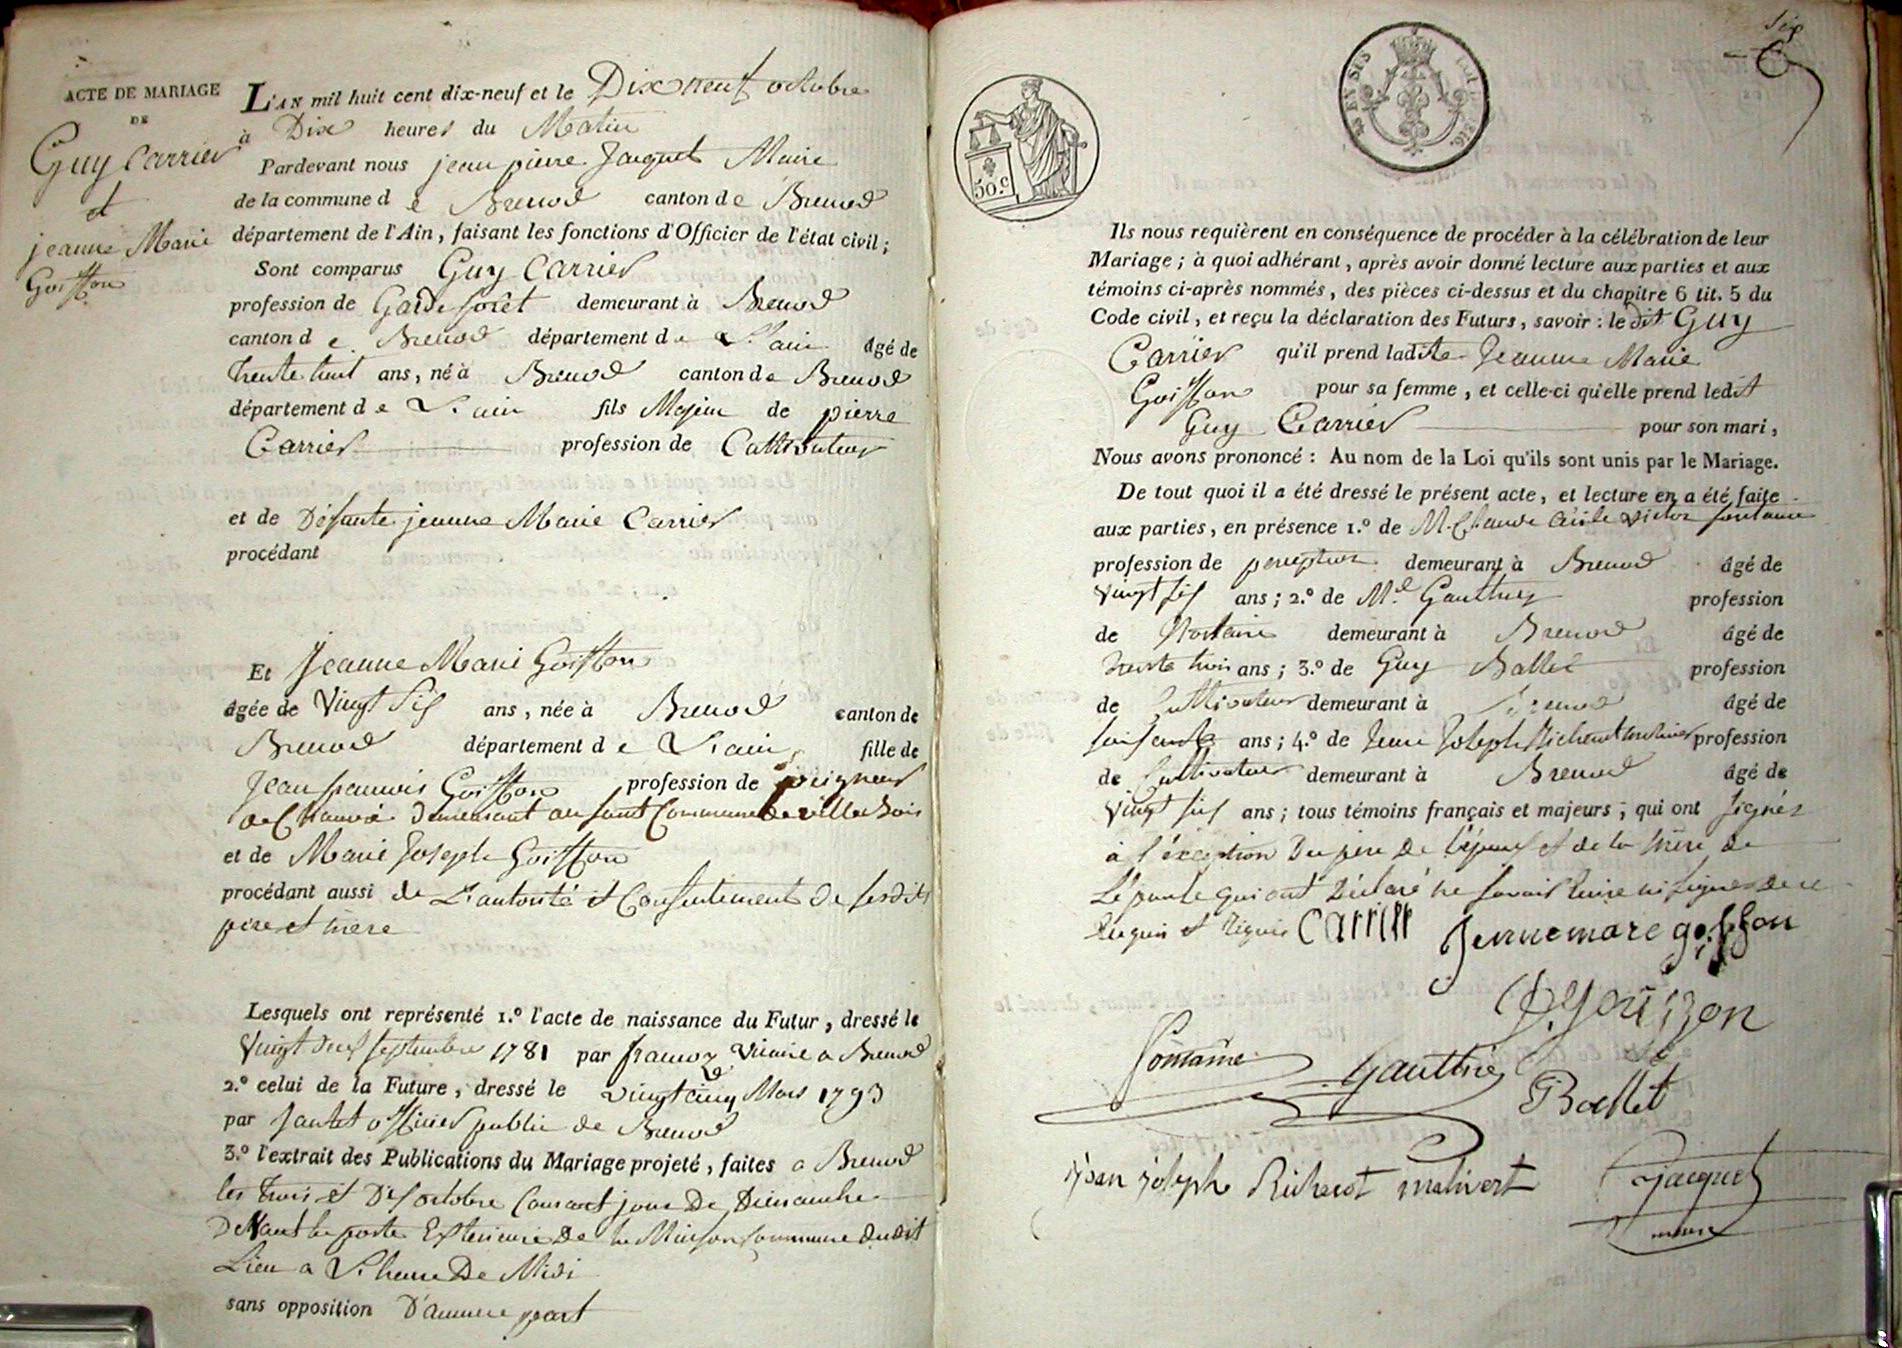 ACTE DE MARIAGE
DE
Guy Carrier
et
jeanne Marie
Goiffon
L'AN mil huit cent dix-neuf et le Dix neuf octobre
à Dix heures du Matin
Pardevant nous jean pierre Jacquet Maire
de la commune d e Brenod canton de Brenod
département de l'Ain, faisant les fonctions d'Officier de l'état civil;
Sont comparus Guy Carrier
profession de Garde foret demeurant à Brenod
canton d e Brenod département d e L'ain âgé de
trente huit ans, né à Brenod canton de Brenod
département d e L'ain fils Majeur de pierre
Carrier profession de Cultivateur
et de Défunte jeanne Marie Carrier
procédant
Et Jeanne Marie Goiffon
âgée de Vingt Six ans, née à Brenod canton de
Brenod département d e L'ain, fille de
Jean francois Goiffon profession de peigneur
de Chanvre Demeurant au Commune de villebois
et de Marie Joseph Goiffon
procédant aussi de L'autorité et Consentement de sesdits
père et mère
Lesquels ont représenté 1.º l'acte de naissance du Futur, dressé le
Vingt septembre 1781 par francoz Vicaire a Brenod
2.º celui de la Future, dressé le vingt cinq Mars 1793
par Jantet officier public de Brenod
3.º l'extrait des Publications du Mariage projeté, faites a Brenod
les trois et Dix octobre Courant jour De Dimanche
Devant la porte Exterieure De la Maison Commune dudit
Lieu a L'heure De Midi
sans opposition D'aucune part
Six
6
50.c
Ils nous requièrent en conséquence de procéder à la célébration de leur
Mariage; à quoi adhérant, après avoir donné lecture aux parties et aux
témoins ci-après nommés, des pièces ci-dessus et du chapitre 6 tit. 5 du
Code civil, et reçu la déclaration des Futurs, savoir: le dit Guy
Carrier qu'il prend ladite Jeanne Marie
Goiffon pour sa femme, et celle-ci qu'elle prend ledit
Guy Carrier pour son mari,
Nous avons prononcé: Au nom de la Loi qu'ils sont unis par le Mariage.
De tout quoi il a été dressé le présent acte, et lecture en a été faite
aux parties, en présence 1.º de M. Claude Cécile Victor fontaine
profession de percepteur demeurant à Brenod âgé de
Vingt Six ans; 2.º de M.e Gauthier profession
de Notaire demeurant à Brenod âgé de
trente trois ans; 3.º de Guy Ballet profession
de Cultivateur demeurant à Brenod âgé de
soixante ans; 4.º de Jean Joseph Richerot profession
de Cultivateur demeurant à Brenod âgé de
Vingt six ans; tous témoins français et majeurs; qui ont signés
à l'exception Du père De l'époux et de la mère de
L'épouse qui ont Déclaré ne savoir lire ni signer de ce
requis Carrier Jennemare goiffon
Goiffon
Fontaine Gauthier
G Ballet
jean joseph Richerot malivert Jacquet
maire